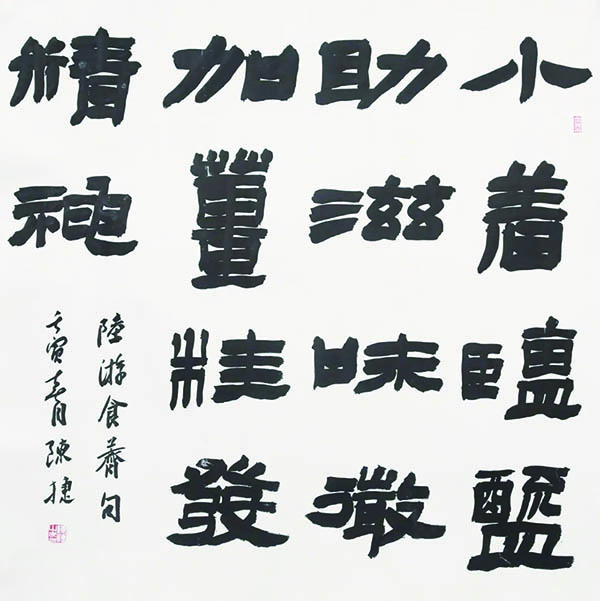 小着鹽醯
助滋味微
加薑桂發
精神
陸游食薺句
壬寅春月陳捷